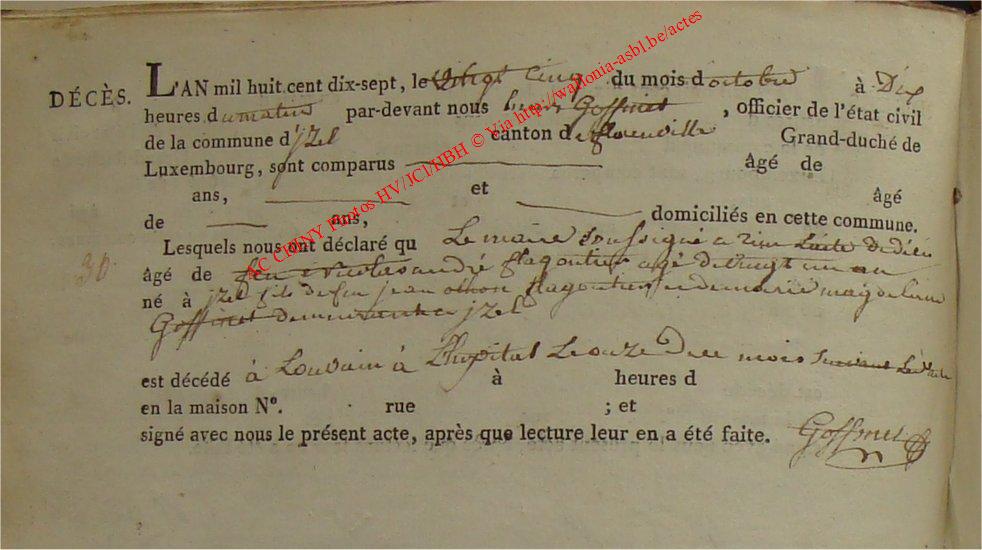 DÉCÈS. L'AN mil huit cent dix-sept, le vingt cinq du mois d'octobre à Dix
heures du matin par-devant nous Goffinet, officier de l'état civil
de la commune d'jzel canton de florenville Grand-duché de
Luxembourg, sont comparus âgé de
ans, et âgé
de ans, domiciliés en cette commune.
Lesquels nous ont déclaré qu Le maire soussigné a
30. âgé de andré flagontier agé de vingt un an
né à jzel fils de feu jean flagontier et de marie magdelaine
Goffinet demeurant a jzel
est décédé à Louvain à L'hopital Le onze de ce mois suivant
à heures d
en la maison N°. rue ; et
signé avec nous le présent acte, après que lecture leur en a été faite. Goffinet
AC CHINY Photos HV/JCl/HBH © Via http://wallonia-asbl.be/actes